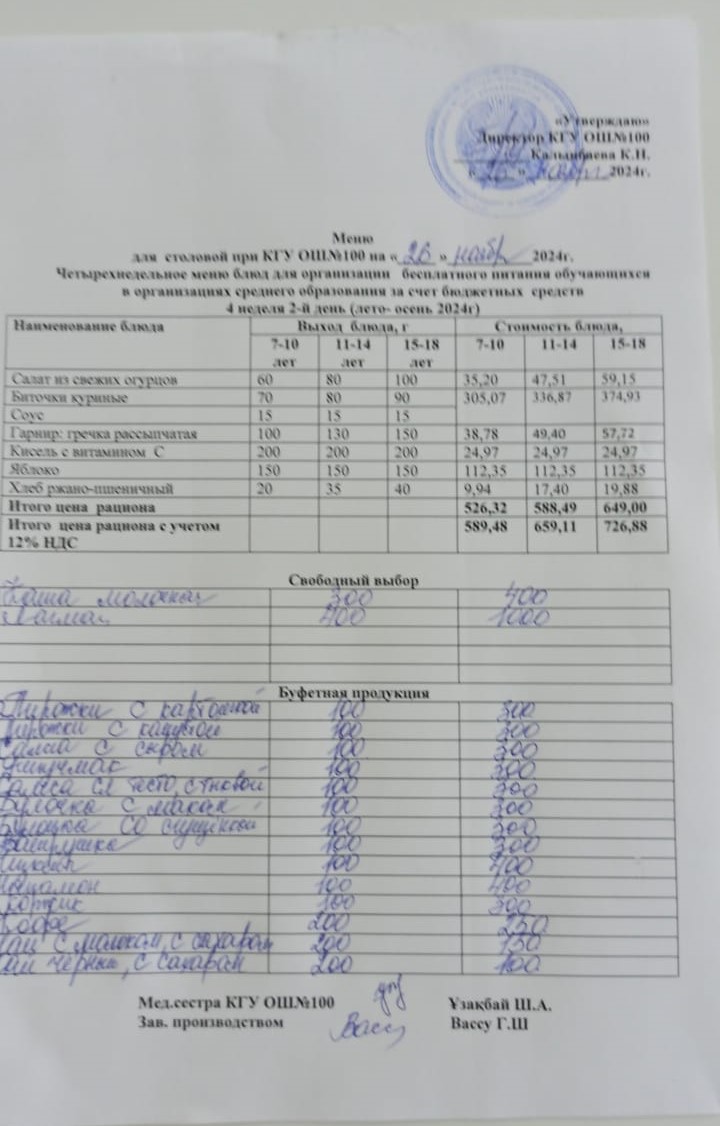 «Утверждаю»
Директор КГУ ОШ№100
Калыбаева К.Н.
« 26 » ноября 2024г.
Меню
для столовой при КГУ ОШ№100 на « 26 » ноябр 2024г.
Четырехнедельное меню блюд для организации бесплатного питания обучающихся
в организациях среднего образования за счет бюджетных средств
4 неделя 2-й день (лето- осень 2024г)
Наименование блюда Выход блюда, г Стоимость блюда,
7-10 лет 11-14 лет 15-18 лет 7-10 11-14 15-18
Салат из свежих огурцов 60 80 100 35,20 47,51 59,15
Биточки куриные 70 80 90 305,07 336,87 374,93
Соус 15 15 15
Гарнир: гречка рассыпчатая 100 130 150 38,78 49,40 57,72
Кисель с витамином С 200 200 200 24,97 24,97 24,97
Яблоко 150 150 150 112,35 112,35 112,35
Хлеб ржано-пшеничный 20 35 40 9,94 17,40 19,88
Итого цена рациона 526,32 588,49 649,00
Итого цена рациона с учетом 589,48 659,11 726,88
12% НДС
Свободный выбор
Каша молочная 300 400
Лагман 400 1000
Буфетная продукция
Пирожки с картошкой 100 300
Пирожки с капустой 100 300
Самса с сыром 100 300
100 300
Самса сл тесто, с тыквой 100 300
Булочка с маком 100 300
Булочка со сгущенкой 100 300
Ватрушка 100 300
100 400
100 400
Коржик 100 300
Кофе 200 250
Чай с молоком, с сахаром 200 150
Чай черный, с сахаром 200 100
Мед.сестра КГУ ОШ№100 Ұзақбай Ш.А.
Зав. производством Вассу Вассу Г.Ш